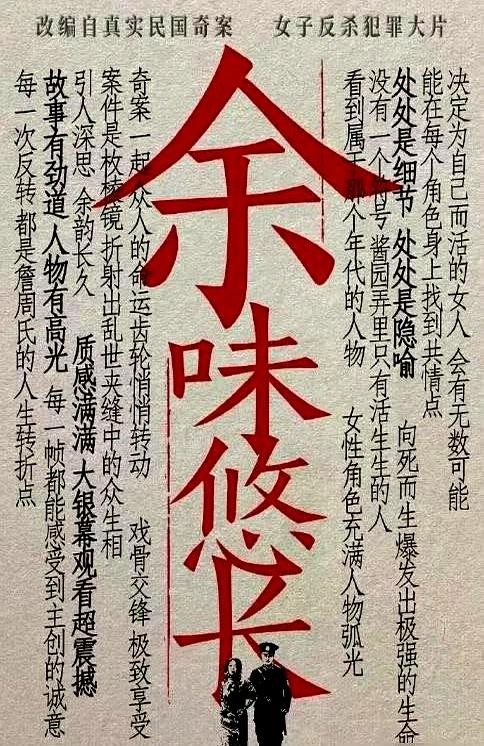 改编自真实民国奇案 女子反杀犯罪大片
决定为自己而活的女人 会有无数可能
能在每个角色身上找到共情点
处处是细节 处处是隐喻 向死而生爆发出极强的生命
没有一个符号 酱园弄里只有活生生的人
看到属于那个年代的人物 女性角色充满人物弧光
余味悠长
奇案一起 众人的命运齿轮悄悄转动 戏骨交锋 极致享受
案件是枚棱镜 折射出乱世夹缝中的众生相
引人深思 余韵长久 质感满满 大银幕观看超震撼
故事有劲道 人物有高光 每一帧都能感受到主创的诚意
每一次反转都是詹周氏的人生转折点